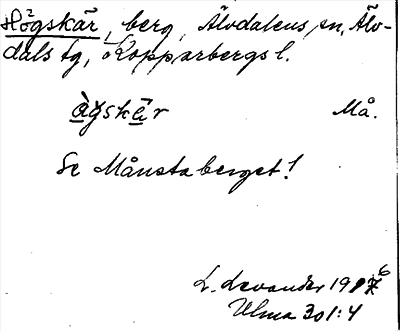 Högskär, berg, Älvdalens sn, Älv-
dals tg, Kopparbergs l.
àgskèr Må.
Se Månstaberget!
L. Levander 1916
Ulma 301:4